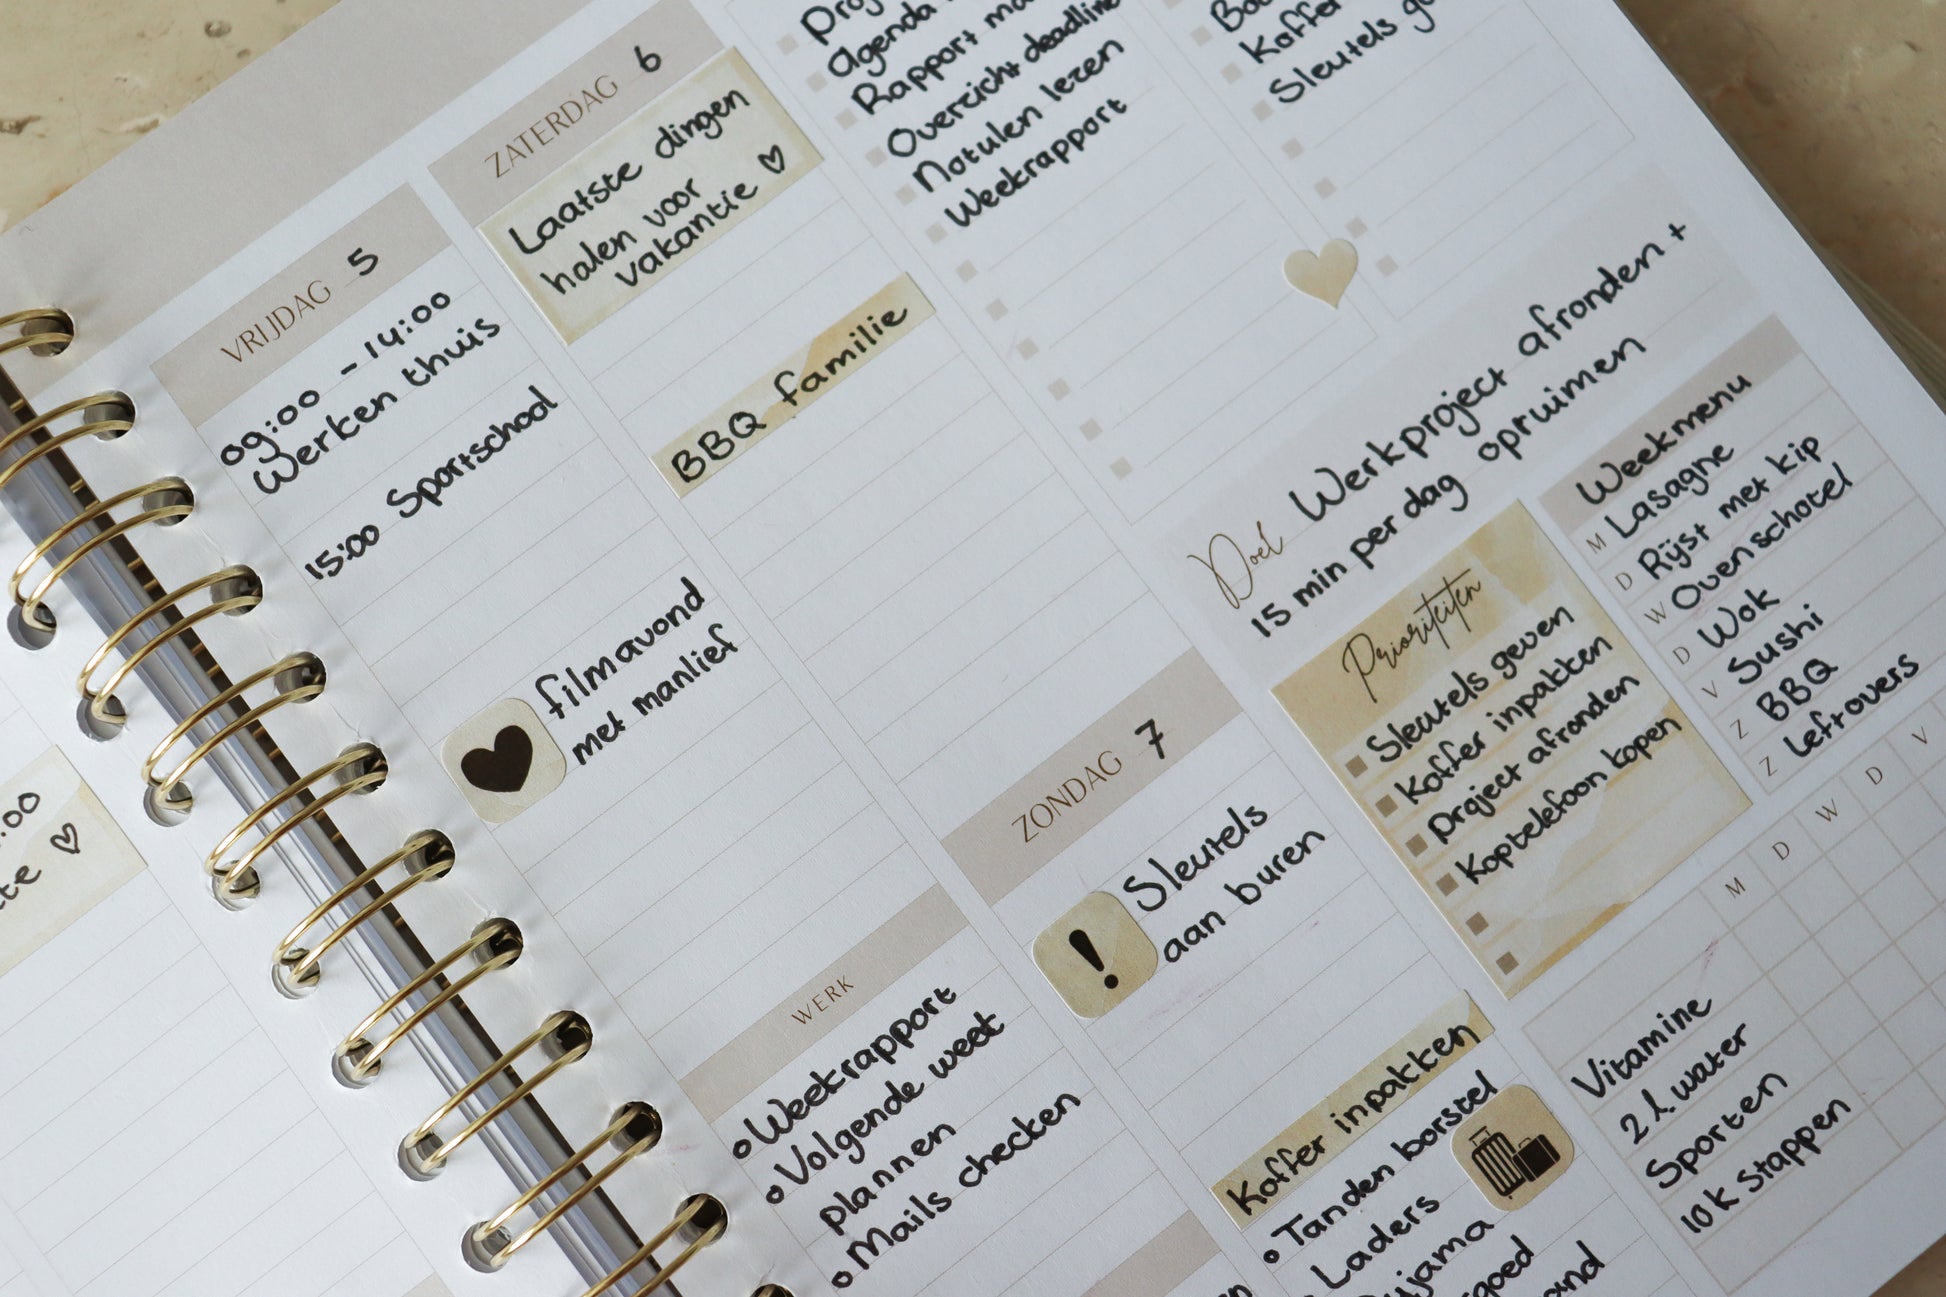 VRIJDAG 5
09:00 - 14:00
Werken thuis
15:00 Sportschool
filmavond
met manlief
WERK
Weekrapport
Volgende week
plannen
Mails checken
ZATERDAG 6
Laatste dingen
halen voor
vakantie ♡
BBQ familie
ZONDAG 7
!
Sleutels
aan buren
Koffer inpakken
Tanden borstel
Laders
Agenda
Rapport
Overzicht deadline
Notulen lezen
Weekrapport
Koffer
Sleutels
Doel Werkproject afronden +
15 min per dag opruimen
Prioriteiten
Sleutels geven
Koffer inpakken
Project afronden
Koptelefoon kopen
Weekmenu
M Lasagne
D Rijst met kip
W Ovenschotel
D Wok
V Sushi
Z BBQ
Z Leftovers
M D W D V
Vitamine
2 L water
Sporten
10k stappen
:00
♡